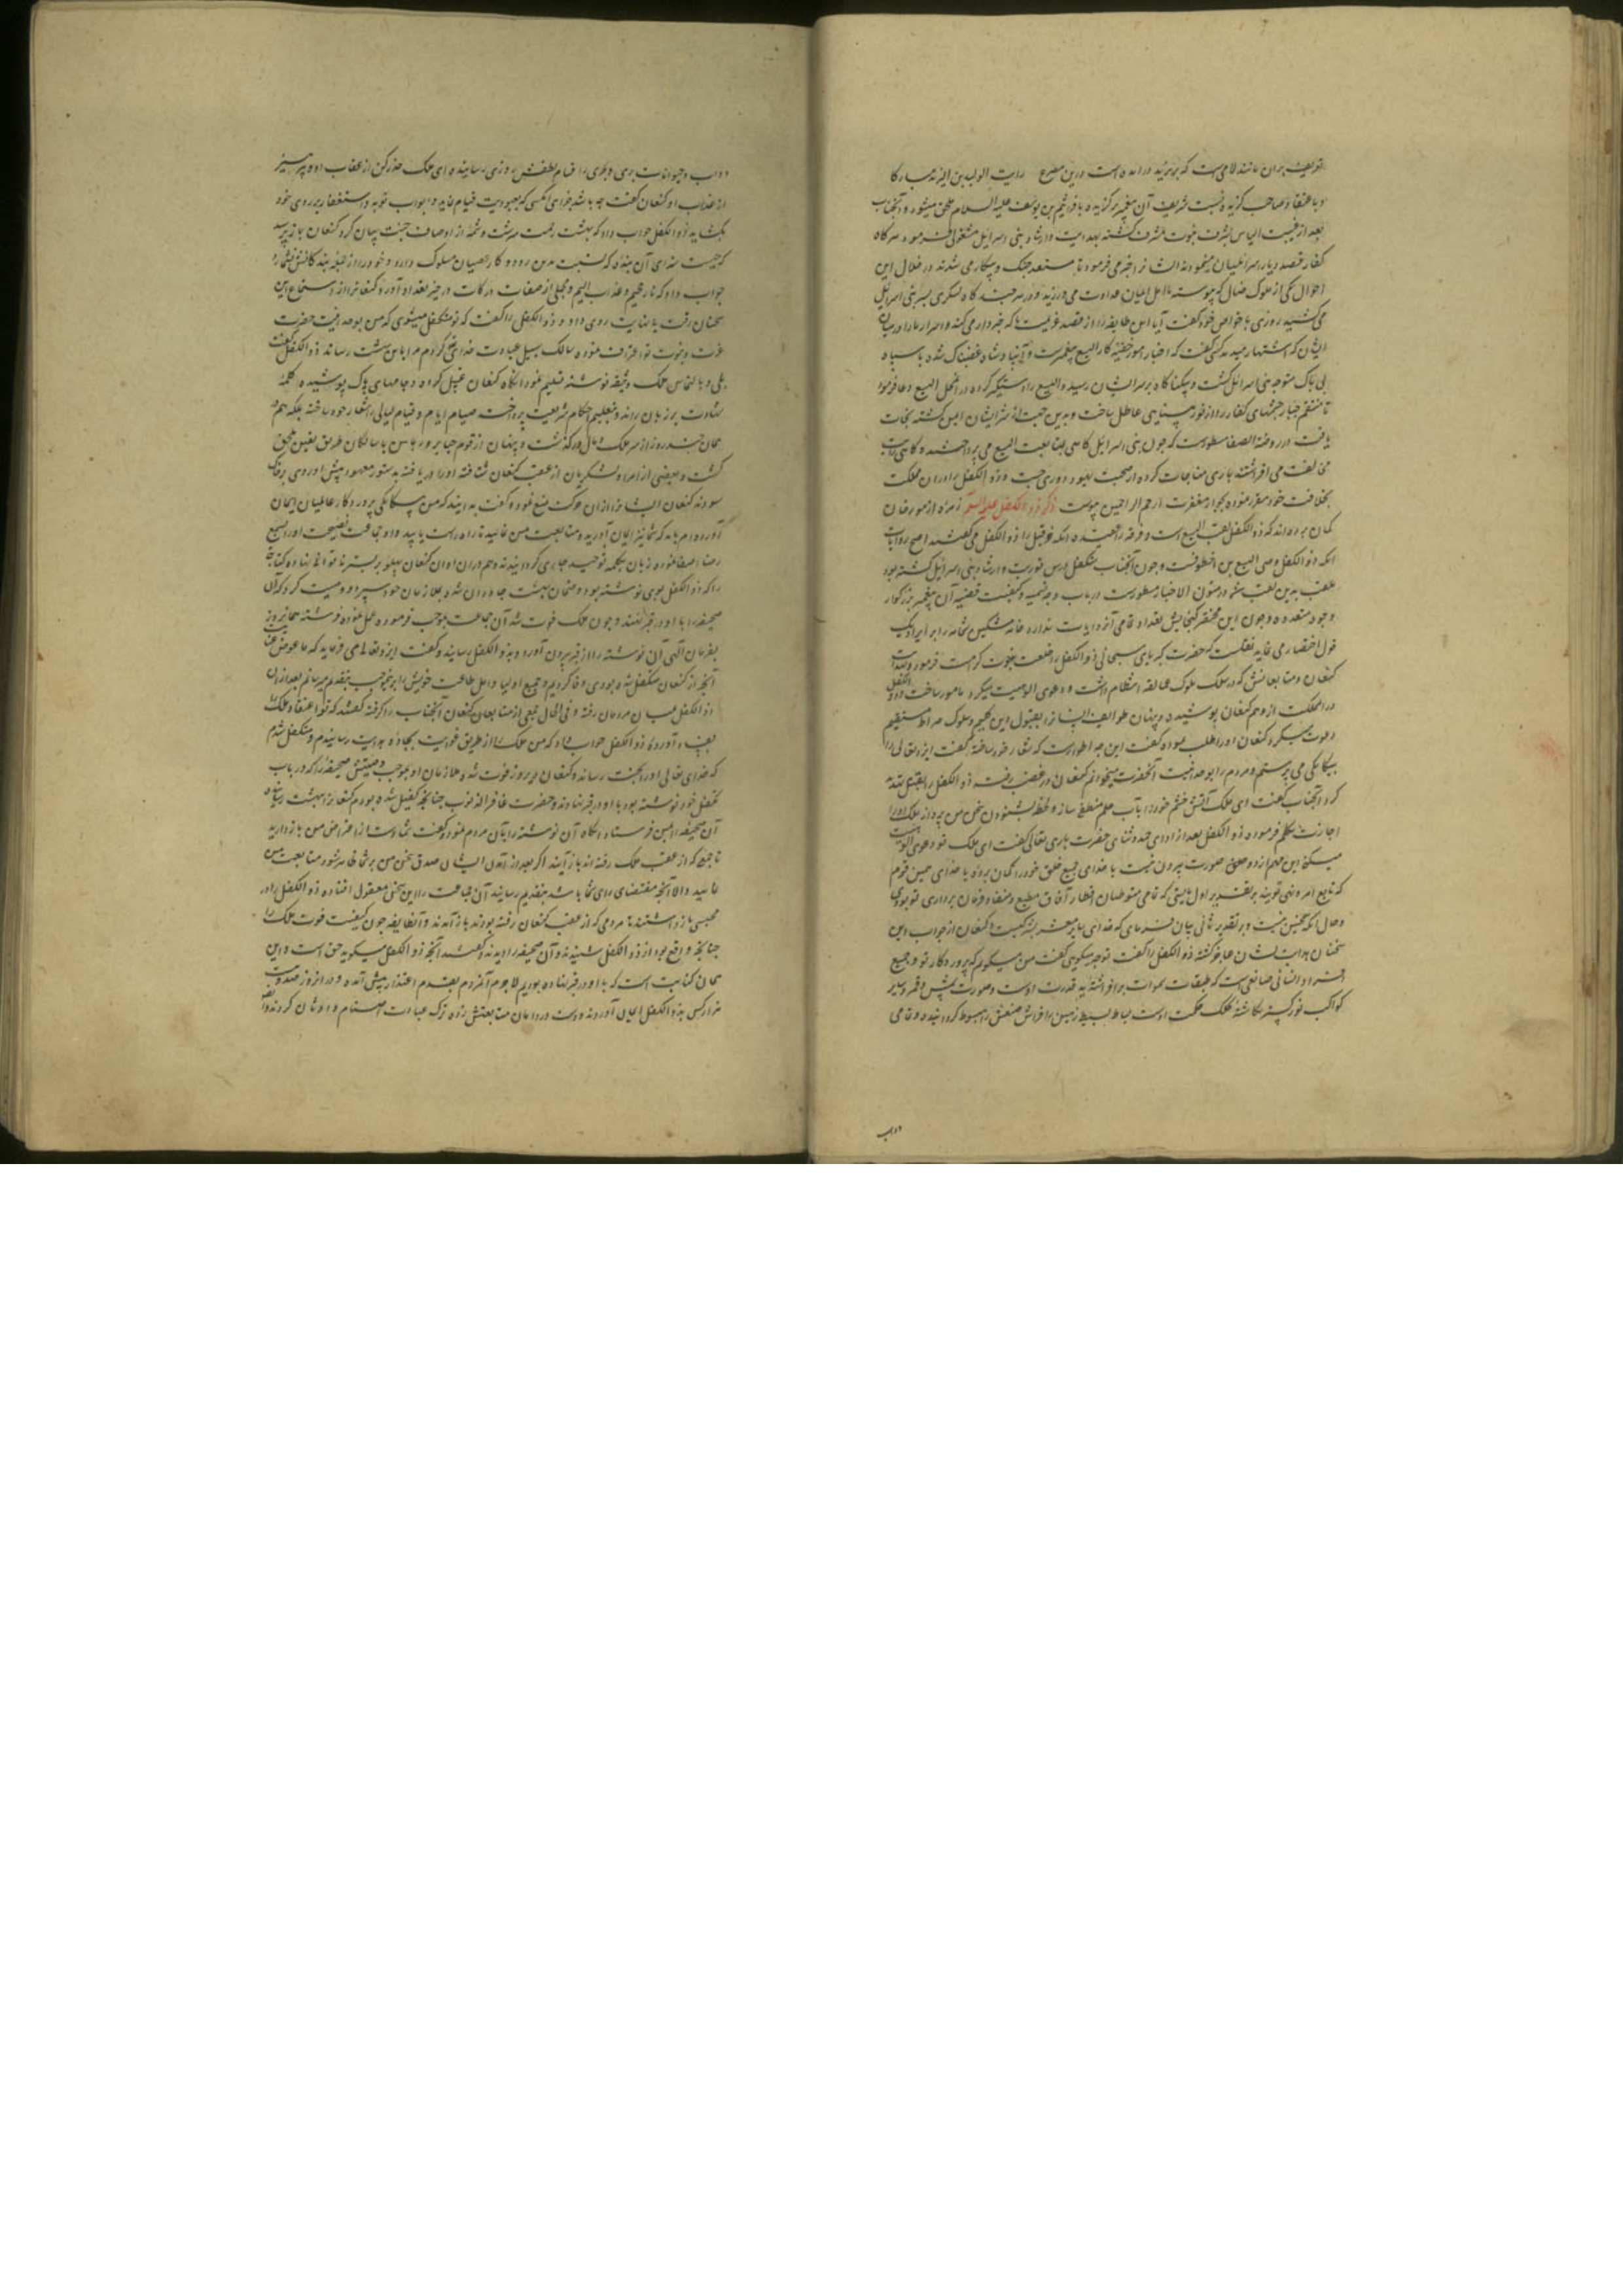 تعریف بران مانند لامی‌ست که بر یزید درامده است درین مصرع رایت الولید بن الیزید مبارکا
و باعتقاد صاحب گزیده نسبت شریف آن پیغمبر برگزیده بافراثیم بن یوسف علیه السلام ملحق میشود و آنجناب
بعد از غیبت الیاس بشرف نبوت مشرف گشته بهدایت و ارشاد بنی اسرائیل مشغولی فرمود هرگاه
کفار قصد دیار اسرائیلیان مینمودند ایشانرا خبر می فرمود تا مستعد جنگ و پیکار می شدند در خلال این
احوال یکی از ملوک ضال که پیوسته با اهل ایمان عداوت می ورزید و در هر چند گاه لشکری بسر بنی اسرائیل
می کشید روزی با خواص خود گفت آیا این طایفه را از قصد عزیمت ما که خبردار می کند و اسرار ما را در میان
ایشان که اشتهار میدهد کسی گفت که اخبار امور خفیه کار الیسع پیغمبرست و آن پادشاه غضبناک شده با سپاه
بی باک متوجه بنی اسرائیل گشت و بیکناکاه بر سر ایشان رسید و الیسع را دستگیر کرده در آن محل الیسع دعا فرمود
تا منتقم جبار چشمهای کفار را از نور بینایی عاطل ساخت و بدین جهت از شر ایشان ایمن گشته نجات
یافت در روضة الصفا مسطورست که چون بنی اسرائیل گاهی بمتابعت الیسع می پرداختند و گاهی رایت
مخالفت می افراشتند باری مناجات کرده از صحبت یهود دوری جست و ذو الکفل را در ان مملکت
بخلافت خود مقرر نموده بجوار مغفرت ارحم الراحمین پیوست ذکر ذو الکفل علیه السلم زمره از مورخان
گمان برده اند که ذو الکفل لقب الیسع است و فرقه را عقیده انکه حزقیل را ذو الکفل می گفتند اصح روایات
انکه ذو الکفل وصی الیسع بن اخطوبست و چون آنجناب متکفل درس توریت و ارشاد بنی اسرائیل گشته بود
ملقب بدین لقب شد و در متون الاخبار مسطورست در باب وجه تسمیه و کیفیت قضیه آن پیغمبر بزرگوار
وجوه متعدده و چون این مختصر گنجایش تعداد تمامی آن روایات ندارد خامه مشکین شمامه را بر ایراد یک
قول اختصار می نماید نقلست که حضرت کبریای سبحانی ذو الکفل را خلعت نبوت کرامت فرمود و بهدایت
کنعان و متابعانش که در سلک ملوک عمالقه انتظام داشت و دعوی الوهیت میکرد مامور ساخت و ذو الکفل
در آن مملکت از وهم کنعان پوشیده و پنهان طوایف انسانرا بقبول دین قویم و سلوک صراط مستقیم
دعوت میکرد کنعان او را طلب نموده گفت این چه اطوارست که شعار خود ساخته گفت ایزد تعالی را
بیگانگی می پرستم و مردم را بوحدانیت آنحضرت میخوانم کنعان در غضب رفته ذو الکفل را بقتل تهدید
کرد آنجناب گفت ای ملک آتش خشم خود را بآب حلم منطفی ساز و لحظه بشنودن سخن من پرداز ملک او را
اجازت تکلم فرموده ذو الکفل بعد از ادای حمد و ثنای حضرت باری تعالی گفت ای ملک تو دعوی الوهیت
میکنی این مهم از دو معنی صورت بیرون نیست یا خدای جمیع خلق خود را گمان برده یا خدای همین قوم
که تابع امر و نهی تو بند بر تقدیر اول بایستی که تمامی متوطنان اقطار آفاق مطیع و منقاد و فرمان برداری تو بودندی
و حال انکه چنین نیست و بر تقدیر ثانی بیان فرمای که خدای سایر معشر بشر کیست کنعان از جواب این
سخنان هدایت نشان عاجز گشته ذو الکفل را گفت تو چه میگویی گفت من میگویم که پروردگار تو و جمیع
افراد انسانی صانعی‌ست که طبقات سموات برافراشته ید قدرت اوست و صورت شمس و قمر و سایر
کواکب نور گستر نگاشته کلک حکمت اوست بساط بسیط زمین را فراش صنعش مبسوط گردانیده و تمامی
دواب
دواب و حیوانات بری و بحری را اقسام لطفش روزی رسانیده ای ملک حذر کن از عقاب او و پرهیز
از عذاب او کنعان گفت چه باشد جزای آنکسی که بعبودیت قیام نماید و ابواب توبه و استغفار بر روی خود
بگشاید ذو الکفل جواب داد که بهشت رحمت سرشت و شمه از اوصاف جنت بیان کرد کنعان باز پرسید
که چیست سزای آن بنده که نسبت بدین رود و کار عصیان مسلوک دارد و خود را از جمله بندگانش نشمارد
جواب داد که نار جحیم و عذاب الیم و مجملی از صفات درکات در حیز تعداد آورد کنعانرا از استماع این
سخنان رقت بغایت روی داد و ذو الکفل را گفت که تو متکفل میشوی که من بوحدانیت حضرت
عزت و نبوت تو اعتراف نموده سالک سبیل عبادت خدای تعالی گردم مرا بابین بهشت رساند ذو الکفل گفت
بلی و بالتماس ملک وثیقه نوشته تسلیم نمود انگاه کنعان غسل کرده و جامهای پاک پوشیده کلمه
شهادت بر زبان راند و بتعلیم احکام شریعت پرداخت صیام ایام و قیام لیالی را شعار خود ساخته بلکه هم در
همان چند روز از سر ملک و مال در گذشت و پنهان از قوم جبابره در لباس با سالکان طریق یقین ملحق
گشت و بعضی از امرا و لشکریان از عقب کنعان شتافته او را دریافته بدستور معهود پیش او روی بر خاک
سودند کنعان ایشانرا از ان حرکت منع نموده گفت بدانید که من بیگانگی پروردگار عالمیان ایمان
آورده ام باید که شما نیز ایمان آورید و متابعت من نمائید تا راه راست یابید و ان جماعت نصیحت او را بسمع
رضا اصغا نموده زبان بکلمه توحید جاری گردانیدند و هم در ان اوان کنعان پهلو بر بستر ناتوانی نهاده کتابه
را که ذو الکفل بوی نوشته بود و ضمان بهشت جاودان شده بملازمان خود سپرد و وصیت کرد که آن
صحیفه را با او در قبر نهند و چون ملک فوت شد آن جماعت بموجب فرموده عمل نموده فرشته همانروز
بفرمان الهی آن نوشته را از قبر بیرون آورد و بذو الکفل رسانید و گفت ایزد تعالی می فرماید که ما عوض
آنچه از کنعان متکفل شده بودی وفا کردیم و جمیع اولیا و اهل طاعت خویش را برینموجب بتقدیم میرسانیم بعد از ان
ذو الکفل میان مردمان رفته و فی الحال جمعی از متابعان کنعان آنجناب را گرفته گفتند که تو اعتقاد ملک را
بفساد آورده ذو الکفل جواب داد که من ملک را از طریق غوایت بجاده هدایت رسانیدم و متکفل شدم
که خدای تعالی او را بجنت رساند و کنعان دیروز فوت شد و ملازمان او بموجب وصیتش صحیفه را که در باب
تکفل خود نوشته بود با او در قبر نهادند و حضرت غافر الذنوب چنانچه کفیل شده بودم کنعانرا بهشت رسانیده
آن صحیفه را بمن فرستاد انگاه آن نوشته را بان مردم نمود و گفت شما دست از اعراض من باز دارید
تا جمعی که از عقب ملک رفته اند باز آیند اگر بعد از آمدن ایشان صدق سخن من بر شما ظاهر شود متابعت من
نمائید والا آنچه مقتضای رای شما باشد بتقدیم رسانید آن جماعت را این سخن معقول افتاده ذو الکفل را در
محبسی باز داشتند تا مردمی که از عقب کنعان رفته بودند باز آمدند و آنطایفه چون کیفیت فوت ملک را
چنانچه واقع بود از ذو الکفل شنیدند و آن صحیفه را دیدند گفتند آنچه ذو الکفل میگوید حق است و این
همان کتابت است که با او در قبر نهاده بودیم لاجرم آنمردم بقدم اعتذار پیش آمده و در انروز صد و بیست
هزار کس بذو الکفل ایمان آوردند و دست در دامان متابعتش زده ترک عبادت اصنام و اوثان کردند و